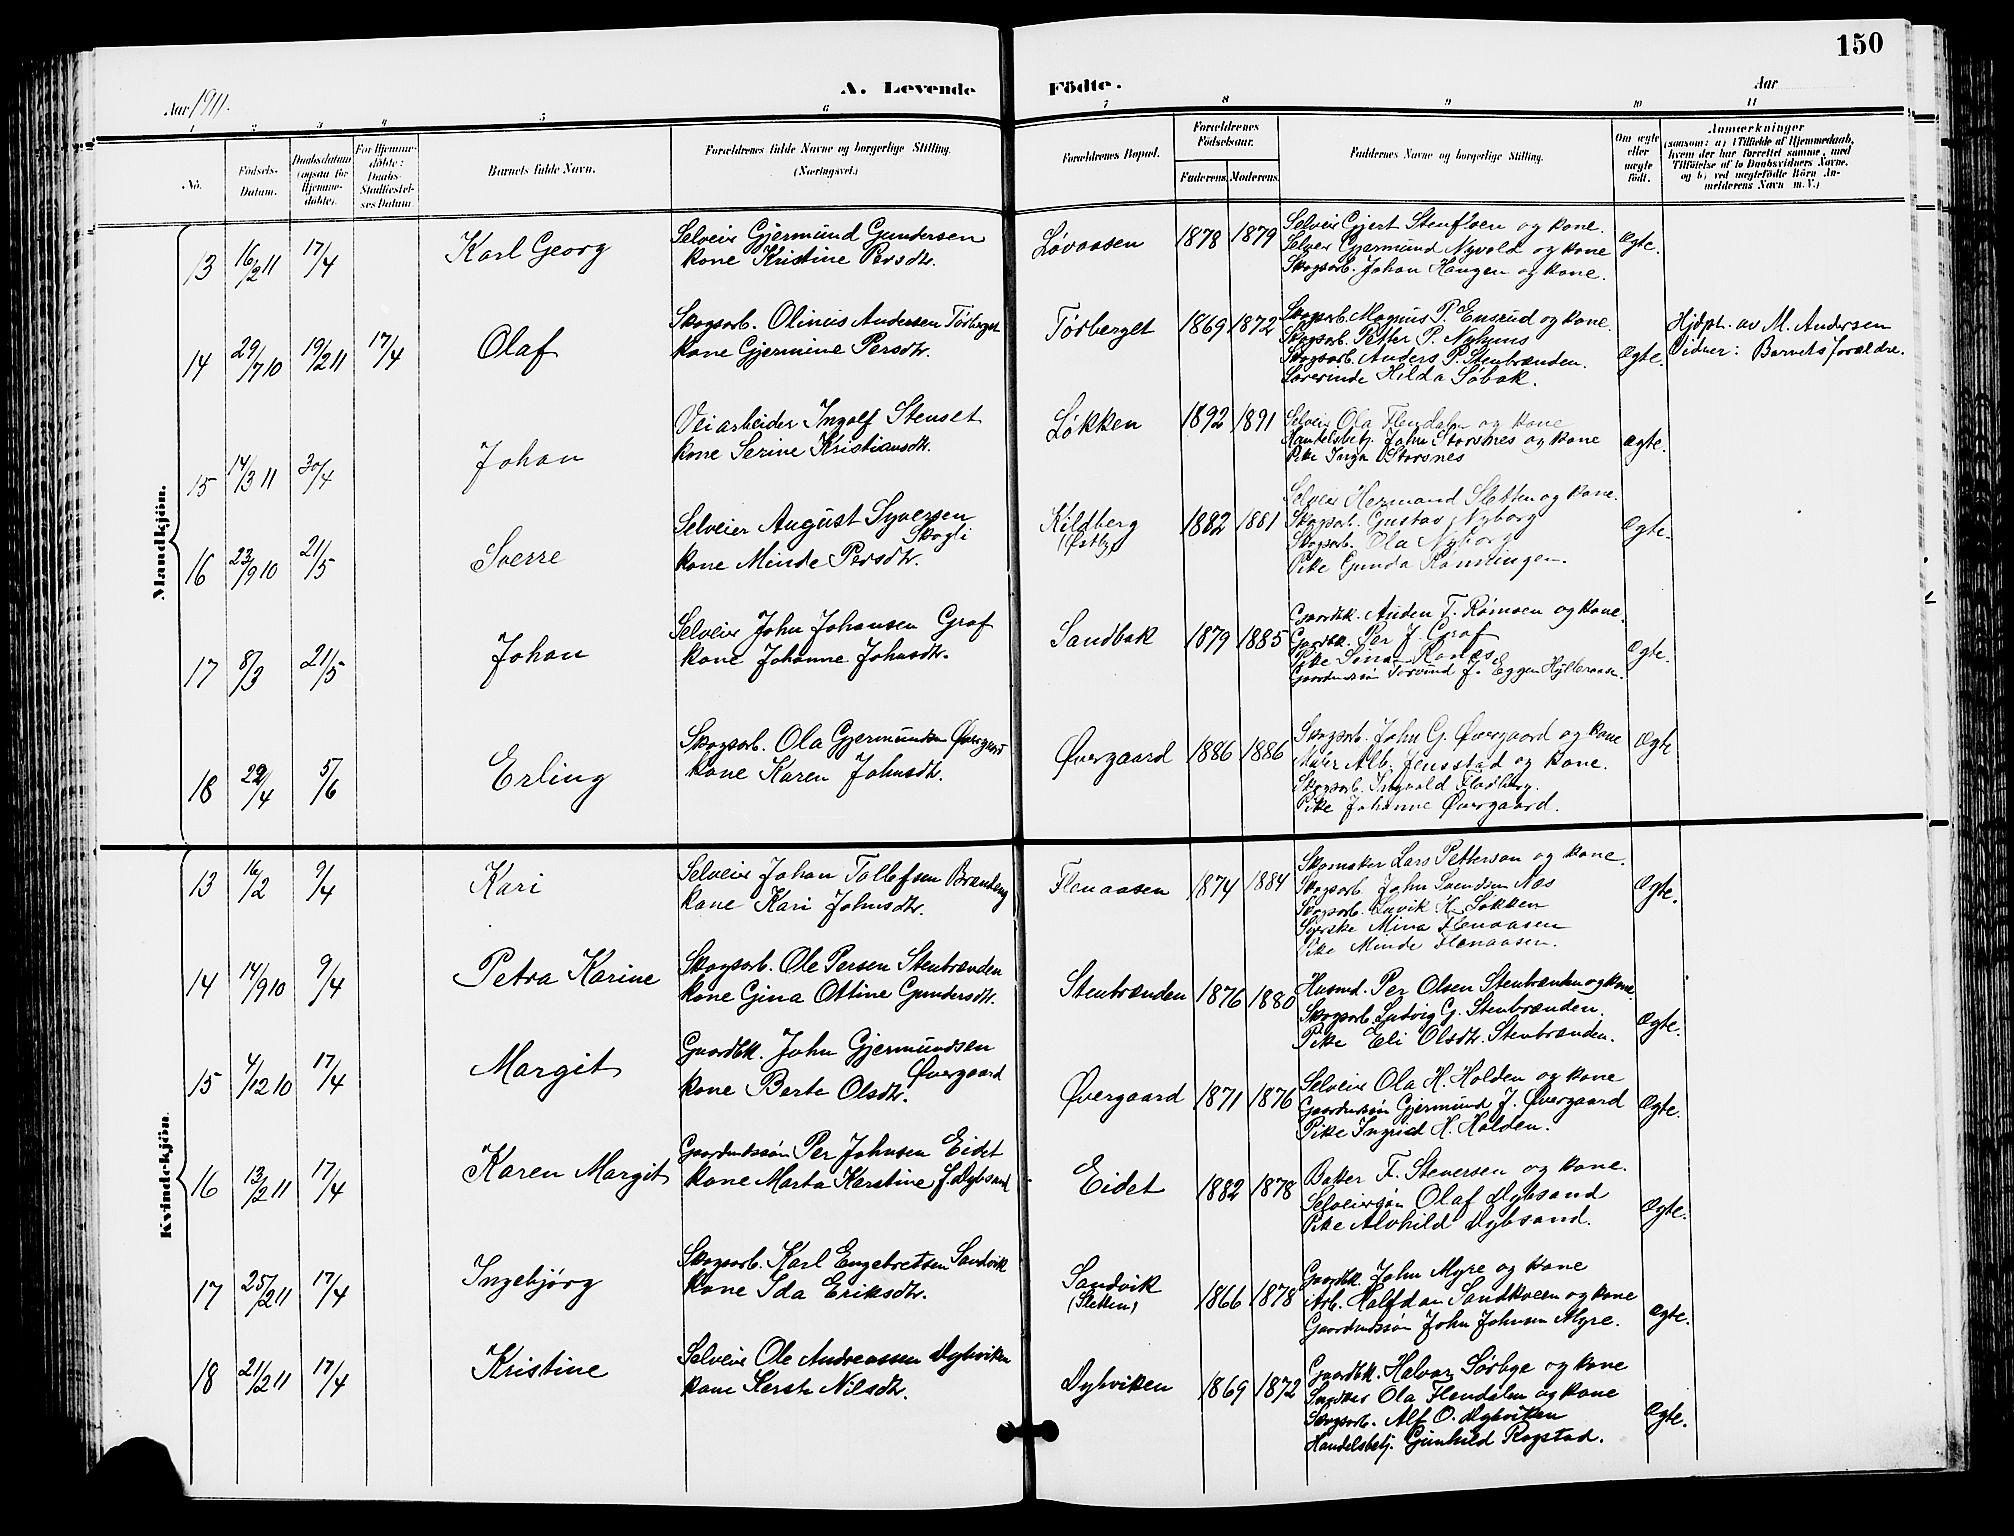 150
Aar 1911.
A. Levende Födte.
Aar
1 2 3 4 5 6 7 8 9 10 11
No.
Födsels-Datum.
Daabsdatum (ogsaa for Hjemme-döbte).
For Hjemme-döbte: Daabs-Stadfæstel-ses Datum
Barnets fulde Navn.
Forældrenes fulde Navne og borgerlige Stilling. (Næringsvei.)
Forældrenes Bopæl.
Forældrenes Födselsaar.
Faderens. Moderens.
Faddernes Navne og borgerlige Stilling.
Om ægte eller uægte födt.
Anmærkninger
(saasom: a) i Tilfælde af Hjemmedaab, hvem der har forrettet samme, med Tilföielse af to Daabsvidners Navne, og b) ved uægtefödte Börn An-melderens Navn m. V.)
Mandkjön.
13 16/2 11 17/4 Karl Georg
Selveier Gjermund Gundersen
kone Kristine Persdtr.
Løvaasen 1878 1879
Selveier Gjert Stenfloen og kone.
Selveier Gjermund Nyvold og kone
Skogsarb. Johan Haugen og kone.
Ægte.
14 29/7 10 19/2 11 17/4 Olaf
Skogsarb. Olinius Andersen Törberget
kone Gjermine Persdtr.
Törberget 1869 1872
Skogsarb. Magnus P. Ensrud og kone.
Skogsarb. Petter P. Nyhuus
Skogsarb. Anders P. Stenbrænden.
Lærerinde Hilda Søbak.
Ægte.
Hjdøpt. av M. Andersen
Vidner: Barnets forældre.
15 14/3 11 30/4 Johan
Veiarbeider Ingolf Stenset
kone Serine Kristiansdtr.
Løkken 1892 1891
Selveier Ola Flendalen og kone
Handelsbetj. John Storsnes og kone
Pike Inga Storsnes
Ægte.
16 23/9 10 21/5 Sverre
Selveier August Syversen Skogli
kone Minde Persdtr.
Kildberg (Østby) 1882 1881
Selveier Hermand Sletten og kone.
Skogsarb. Gustav Nyborg
Skogsarb. Ola Nyborg
Pike Gunda Rønningen.
Ægte.
17 8/3 21/5 Johan
Selveier John Johansen Graf
kone Johanne Johnsdtr.
Sandbak 1879 1885
Gaardbk. Auden F. Römoen og kone.
Gaardbk. Per J. Graf
Pike Sina Rønæs.
Gaardmandssøn J. Eggen Hylleraasen.
Ægte.
18 22/4 5/6 Erling
Skogsarb. Ola Gjermundsen Øvergaard
kone Karen Johnsdtr.
Øvergaard 1886 1886
Skogsarb. John G. Øvergaard og kone
Maler Alb. Jensstad og kone.
Skogsarb. Ingvald Flodberg.
Pike Johanne Øvergaard.
Ægte
Kvindekjön.
13 16/2 9/4 Kari
Selveier Johan Tollefsen Brændeng
kone Kari Johnsdtr.
Flenaasen 1874 1884
Skomaker Lars Petterson og kone.
Skogsarb. John Svendsen Næs
Skogsarb. Luvik H. Løkken
Syerske Mina Flenaasen
Pike Minde Flenaasen.
Ægte.
14 14/9 10 9/4 Petra Karine
Skogsarb. Ole Persen Stenbrænden
kone Gina Ottine Gundersdtr.
Stenbrænden 1876 1880
Husmd. Per Olsen Stenbrænden og kone.
Skogsarb. Ludvig G. Stenbrænden.
Pike Eli Olsdtr. Stenbrænden.
Ægte.
15 4/12 10 17/4 Margit
Gaardbk. John Gjermundsen Øvergaard
kone Berte Olsdtr.
Øvergaard 1871 1876
Selveier Ola H. Holden og kone
Gaardmdssøn Gjermund J. Øvergaard
Pike Ingrid H. Holden.
Ægte.
16 13/2 11 17/4 Karen Margit
Gaardmdssøn Per Johnsen Eidet
kone Marta Kerstine J. Dybsand
Eidet 1882 1878
Baker F. Stenersen og kone.
Selveiersøn Olaf Dybsand
Pike Alvhild Dybsand.
Ægte.
17 25/2 11 17/4 Ingebjørg
Skogsarb. Karl Engebretsen Sandvik
kone Ida Eriksdtr.
Sandvik (Sletten) 1866 1878
Gaardbk. John Myre og kone
Arb. Halfdan Sandkveen og kone
Gaardmdssøn John Johnsen Myre.
Ægte.
18 21/2 11 17/4 Kristine
Selveier Ole Andreassen Dybviken
kone Kerste Nilsdtr.
Dybviken 1869 1872
Gaardbk. Halvor Sörhye og kone
Snedker Ola Flendalen og kone
Skogsarb. Alf O. Dybviken
Handelsbetj. Gunhild Rogstad.
Ægte.